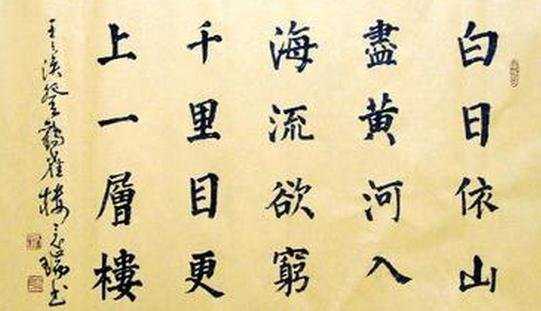 白日依山
盡黃河入
海流欲窮
千里目更
上一層樓
王之渙登鸛雀樓 志瑞书